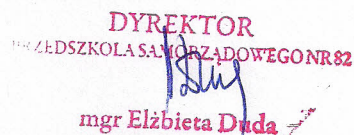 DYREKTOR
PRZEDSZKOLA SAMORZĄDOWEGO NR 82
mgr Elżbieta Duda